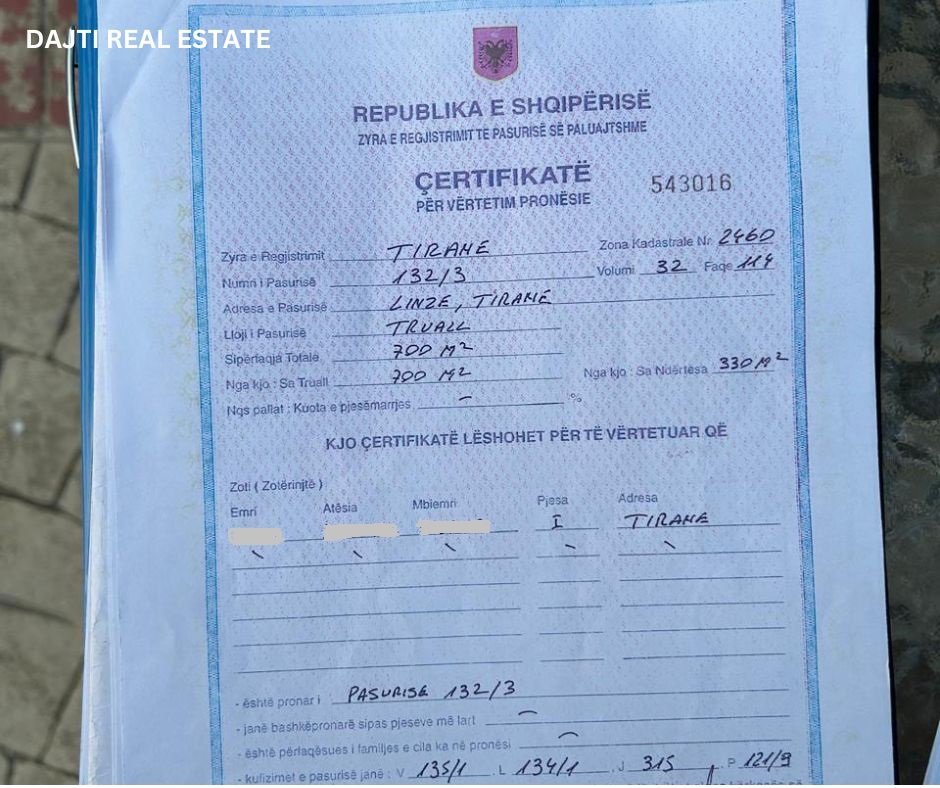 DAJTI REAL ESTATE
REPUBLIKA E SHQIPËRISË
ZYRA E REGJISTRIMIT TE PASURISË SË PALUAJTSHME
ÇERTIFIKATË
PËR VËRTETIM PRONËSIE
543016
Zyra e Regjistrimit TIRANE Zona Kadastrale Nr. 2460
Numri i Pasurisë 132/3 Volumi 32 Faqe 114
Adresa e Pasurisë LINZE, TIRANË
Lloji i Pasurisë TRUALL
Sipërfaqja Totale 700 M²
Nga kjo : Sa Truall 700 M² Nga kjo : Sa Ndërtesa 330 M²
Nqs pallat : Kuota e pjesëmarrjes - %
KJO ÇERTIFIKATË LËSHOHET PËR TË VËRTETUAR QË
Zoti ( Zotërinjtë )
Emri Atësia Mbiemri Pjesa Adresa
I TIRANE
- është pronar i PASURISE 132/3
- janë bashkëpronarë sipas pjeseve më lart -
- është përfaqësues i familjes e cila ka në pronësi -
- kufizimet e pasurisë janë : V 135/1 . L 134/1 . J 315 . P 121/9